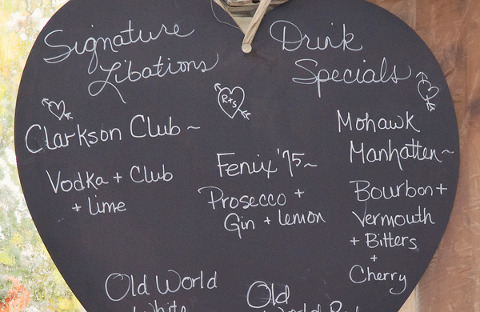 Signature
Libations
Drink
Specials
R+S
Clarkson Club ~
Vodka + Club
+ lime
Fenix '75 ~
Prosecco +
Gin + Lemon
Mohawk
Manhatten ~
Bourbon +
Vermouth
+ Bitters
+
Cherry
Old World
White
Old
World Red